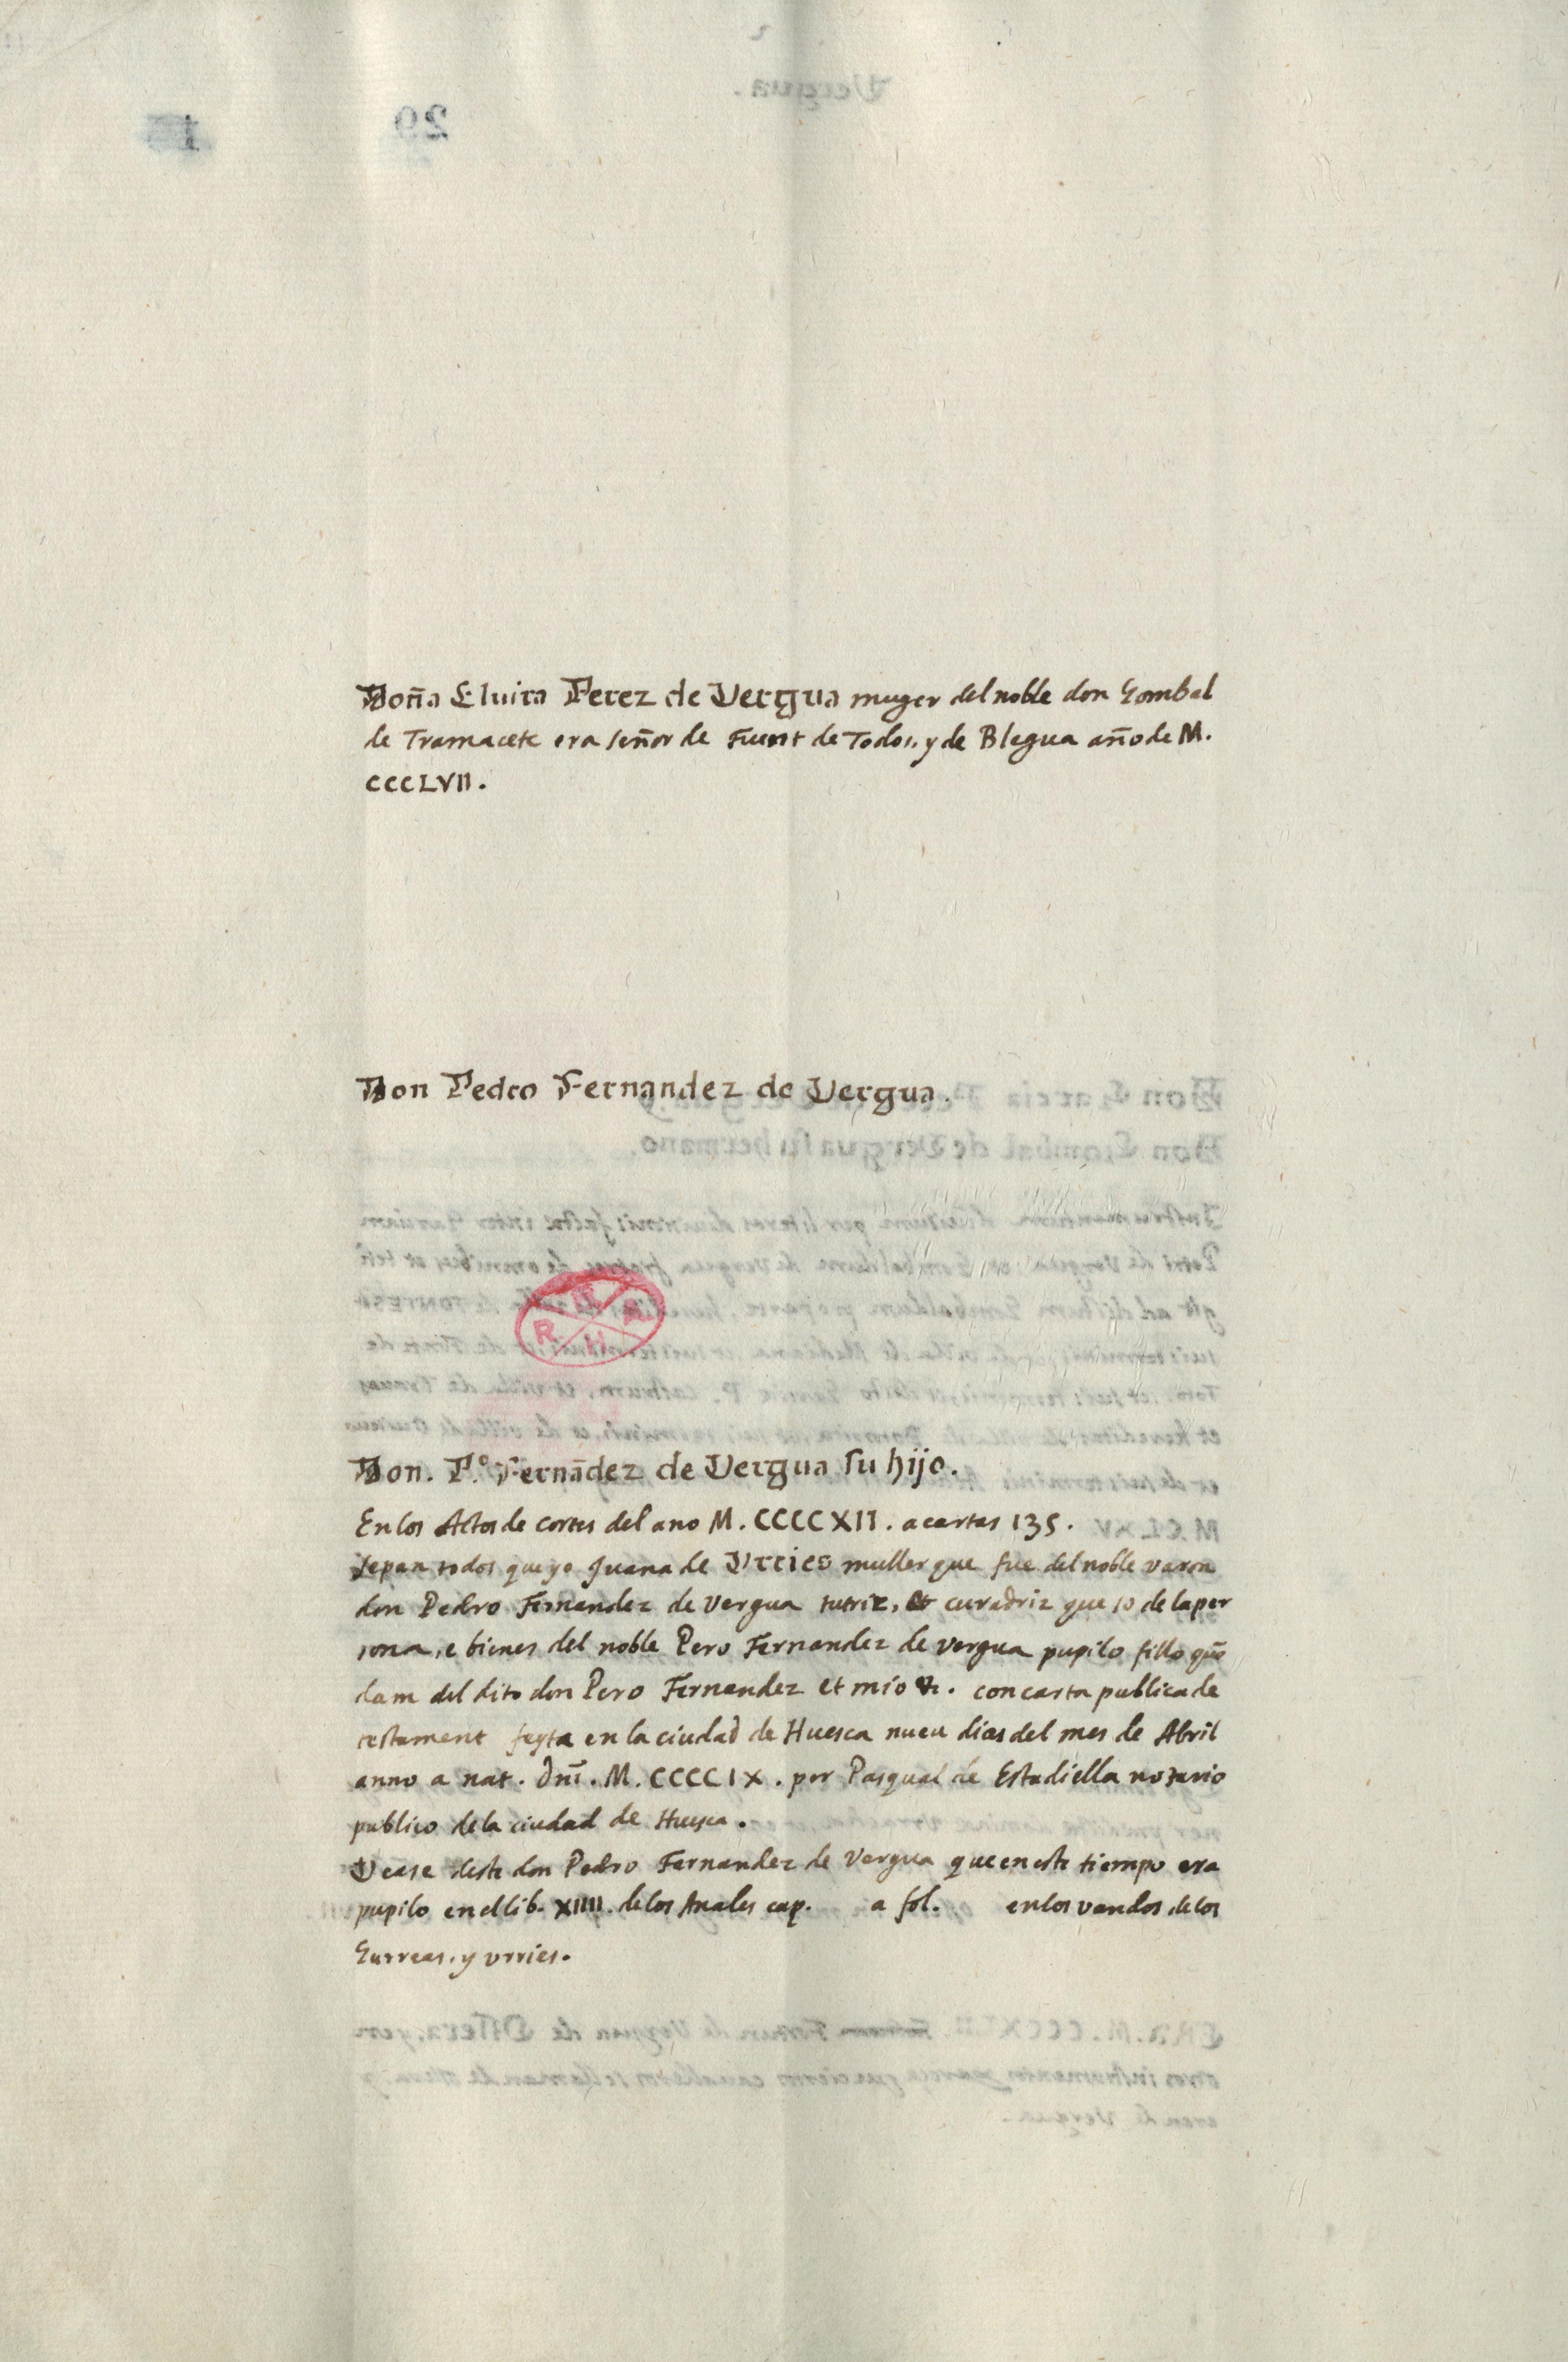 Doña Eluira Perez de Vergua muger del noble don Gombal
de Tramacete era señor de Fuent de Todos, y de Blegua año de M.
CCCLVII.
Don Pedro Fernandez de Vergua.
Don. P.º Fernãdez de Vergua su hijo.
En los Actos de cortes del ano M. CCCCXII. a cartas 135.
Sepan todos que yo Juana de Vrries muller que fue del noble varon
don Pedro Fernandez de Vergua tutriz, et curadriz que so de la per
sona, e bienes del noble Pero Fernandez de Vergua pupilo fillo quõ
dam del dito don Pero Fernandez et mio &c. con carta publica de
testament feyta en la ciudad de Huesca nueu dias del mes de Abril
anno a nat. dnĩ. M. CCCCIX. por Pasqual de Estadiella notario
publico de la ciudad de Huesca.
Vease deste don Pedro Fernandez de Vergua que en este tiempo era
pupilo en el lib. XIIII. de los Anales cap. a fol. en los vandos de los
Gurreas, y vrries.